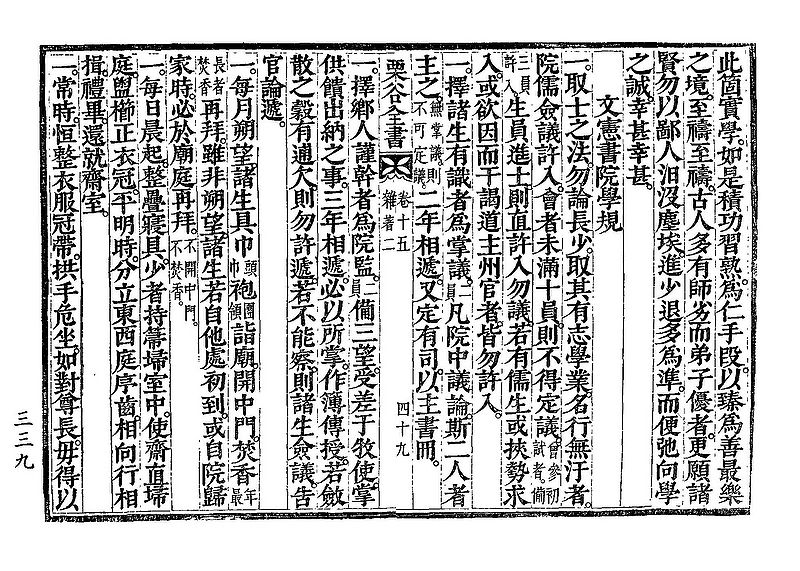 此箇實學。如是積功習熟。爲仁手段。以臻爲善最樂
之境。至禱至禱。古人多有師劣而弟子優者。更願諸
賢勿以鄙人汩沒塵埃。進少退多爲準。而便弛向學
之誠。幸甚幸甚。
文憲書院學規
一。取士之法。勿論長少。取其有志學業。名行無汙者。
院儒僉議許入。會者未滿十員。則不得定議。曾參初試者。備
三員許入。生員進士。則直許入。勿議。若有儒生或挾勢求
入。或欲因而干謁道主州官者。皆勿許入。
一。擇諸生有識者爲掌議。二員凡院中議論。斯二人者
主之。無掌議。則不可定議。二年相遞。又定有司。以主書冊。
栗谷全書 卷十五 雜著二 四十九
一。擇鄕人謹幹者爲院監。一員備三望。受差于牧使。掌
供饋出納之事。三年相遞。必以所掌。作簿傳授。若斂
散之穀有逋欠。則勿許遞。若不能察。則諸生僉議。告
官論遞。
一。每月朔望。諸生具巾頭巾袍團領詣廟。開中門。焚香。年最
長者焚香再拜。雖非朔望。諸生若自他處初到。或自院歸
家時。必於廟庭再拜。不開中門。不焚香。
一。每日晨起。整疊寢具。少者持箒埽室中。使齋直埽
庭。盥櫛正衣冠。平明時。分立東西庭。序齒。相向行相
揖禮畢。還就齋室。
一。常時。恒整衣服冠帶。拱手危坐。如對尊長。毋得以
三三九